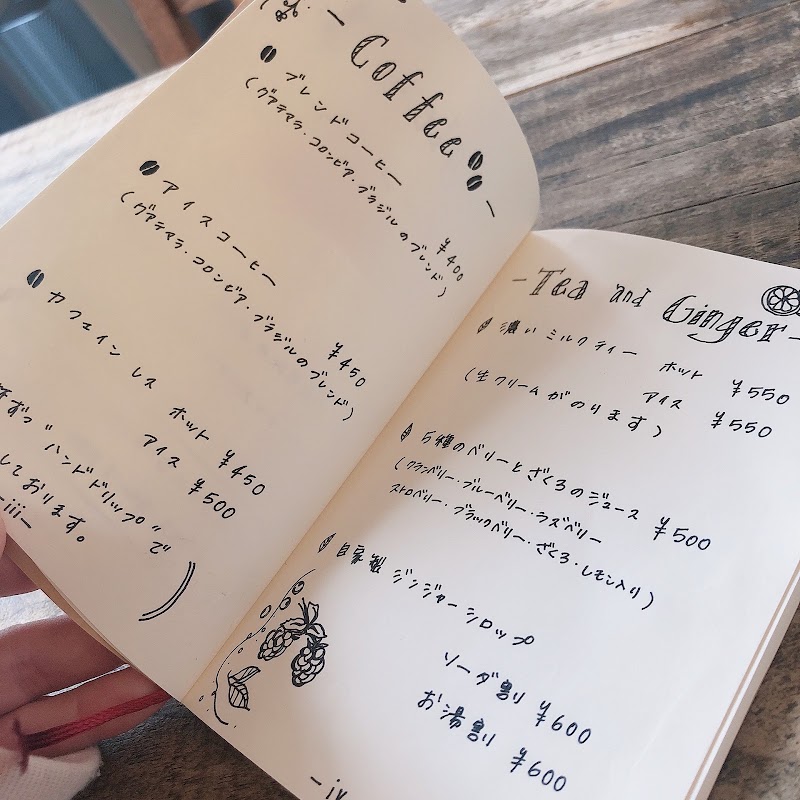 - Coffee -
ブレンドコーヒー
¥400
(グアテマラ・コロンビア・ブラジルのブレンド)
アイスコーヒー
¥450
(グアテマラ・コロンビア・ブラジルのブレンド)
カフェインレス
ホット ¥450
アイス ¥500
ずつ"ハンドドリップ"で
しております。
-iii-
-Tea and Ginger-
濃いミルクティー ホット ¥550
アイス ¥550
(生クリームがのります)
5種のベリーとざくろのジュース ¥500
(クランベリー・ブルーベリー・ラズベリー
ストロベリー・ブラックベリー・ざくろ・レモン入り)
自家製 ジンジャーシロップ
ソーダ割 ¥600
お湯割 ¥600
-iv